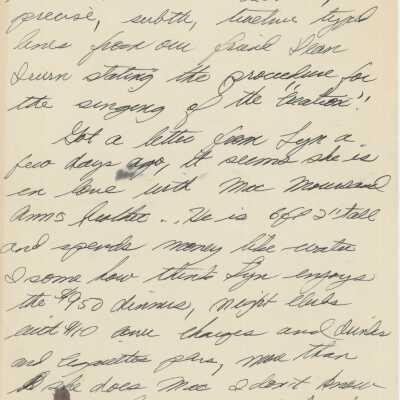 precise, subtle, twelve typed
lines from our friend Dean
Irwin stating the procedure for
the singing of the "Creation"!
Got a letter from Lyn a
few days ago, it seems she is
in love with Mac
Anns brother.. He is 6ft 2" tall
and spends money like water
I some how think Lyn enjoys
the $9.50 dinners, night clubs
with $10 cover charges and drinks
and cigarettes, more than
she does Mac I don't know